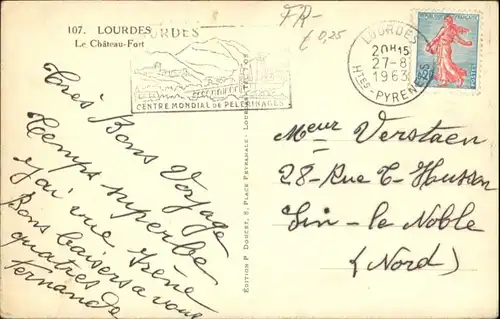 107. LOURDES
Le Château-Fort
FR-
€ 0,25
LOURDES
CENTRE MONDIAL DE PELERINAGES
LOURDES
20H15
27-8
1963
HTES-PYRENEES
REPUBLIQUE FRANÇAISE
Très Bons Voyage
Temps superbe
J'ai vue Irène
Bons baisers a vous
quatres de
Fernande
EDITION P. DOUCET, 8, PLACE PEYRAMALE - LOURDES
Meur Verstaen
28-Rue T- Housson
Sin-le Noble
(Nord)